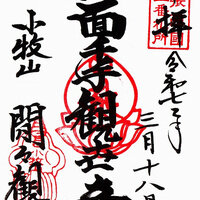 拝
令和七年
三月十八日
面千手観世音
小牧山
間々観